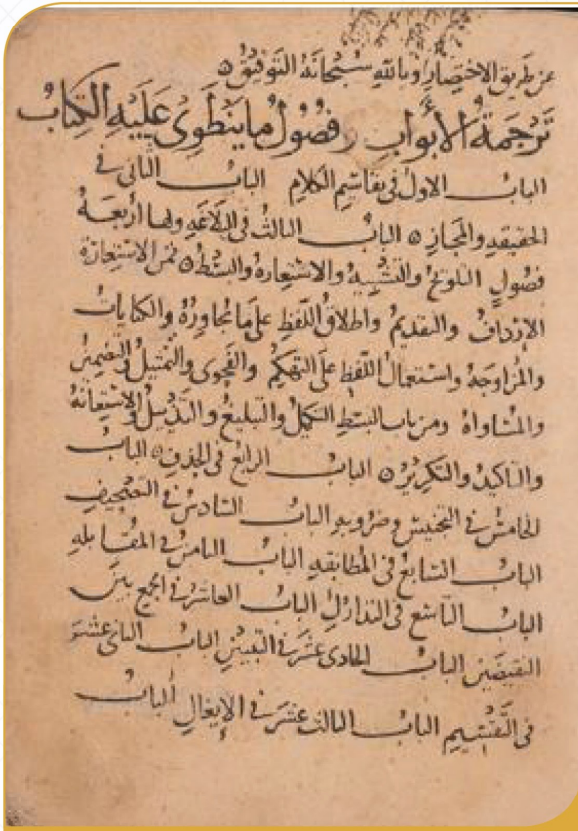 عن طريق الاختصار وبالله سبحانه التوفيق ه
ترجمة الأبواب وفصول ما ينطوي عليه الكتاب
الباب الاول في تقاسيم الكلام الباب الثاني في
الحقيقه والمجاز ه الباب الثالث في البلاغه ولها أربعة
فصول التلويح والتشبيه والاستعارة والبسط ه فمن الاستعارة
الإرداف والتقديم واطلاق اللفظ على ما يجاوره والكنايات
والمزاوجة واستعمال اللفظ على التهكم والفحوى والتمثيل والتضمين
والمساواة ومن باب البسط التكميل والتبليغ والتذييل والاستعانة
والتاكيد والتكرير ه الباب الرابع في الحذف ه الباب
الخامس في التجنيس وضروبه الباب السادس في التصحيف
الباب السابع في المطابقه الباب الثامن في المقابله
الباب التاسع في التدارك الباب العاشر في الجمع بين
النقيضين الباب الحادي عشر في التبيين الباب الثاني عشر
في التقسيم الباب الثالث عشر في الإيغال الباب